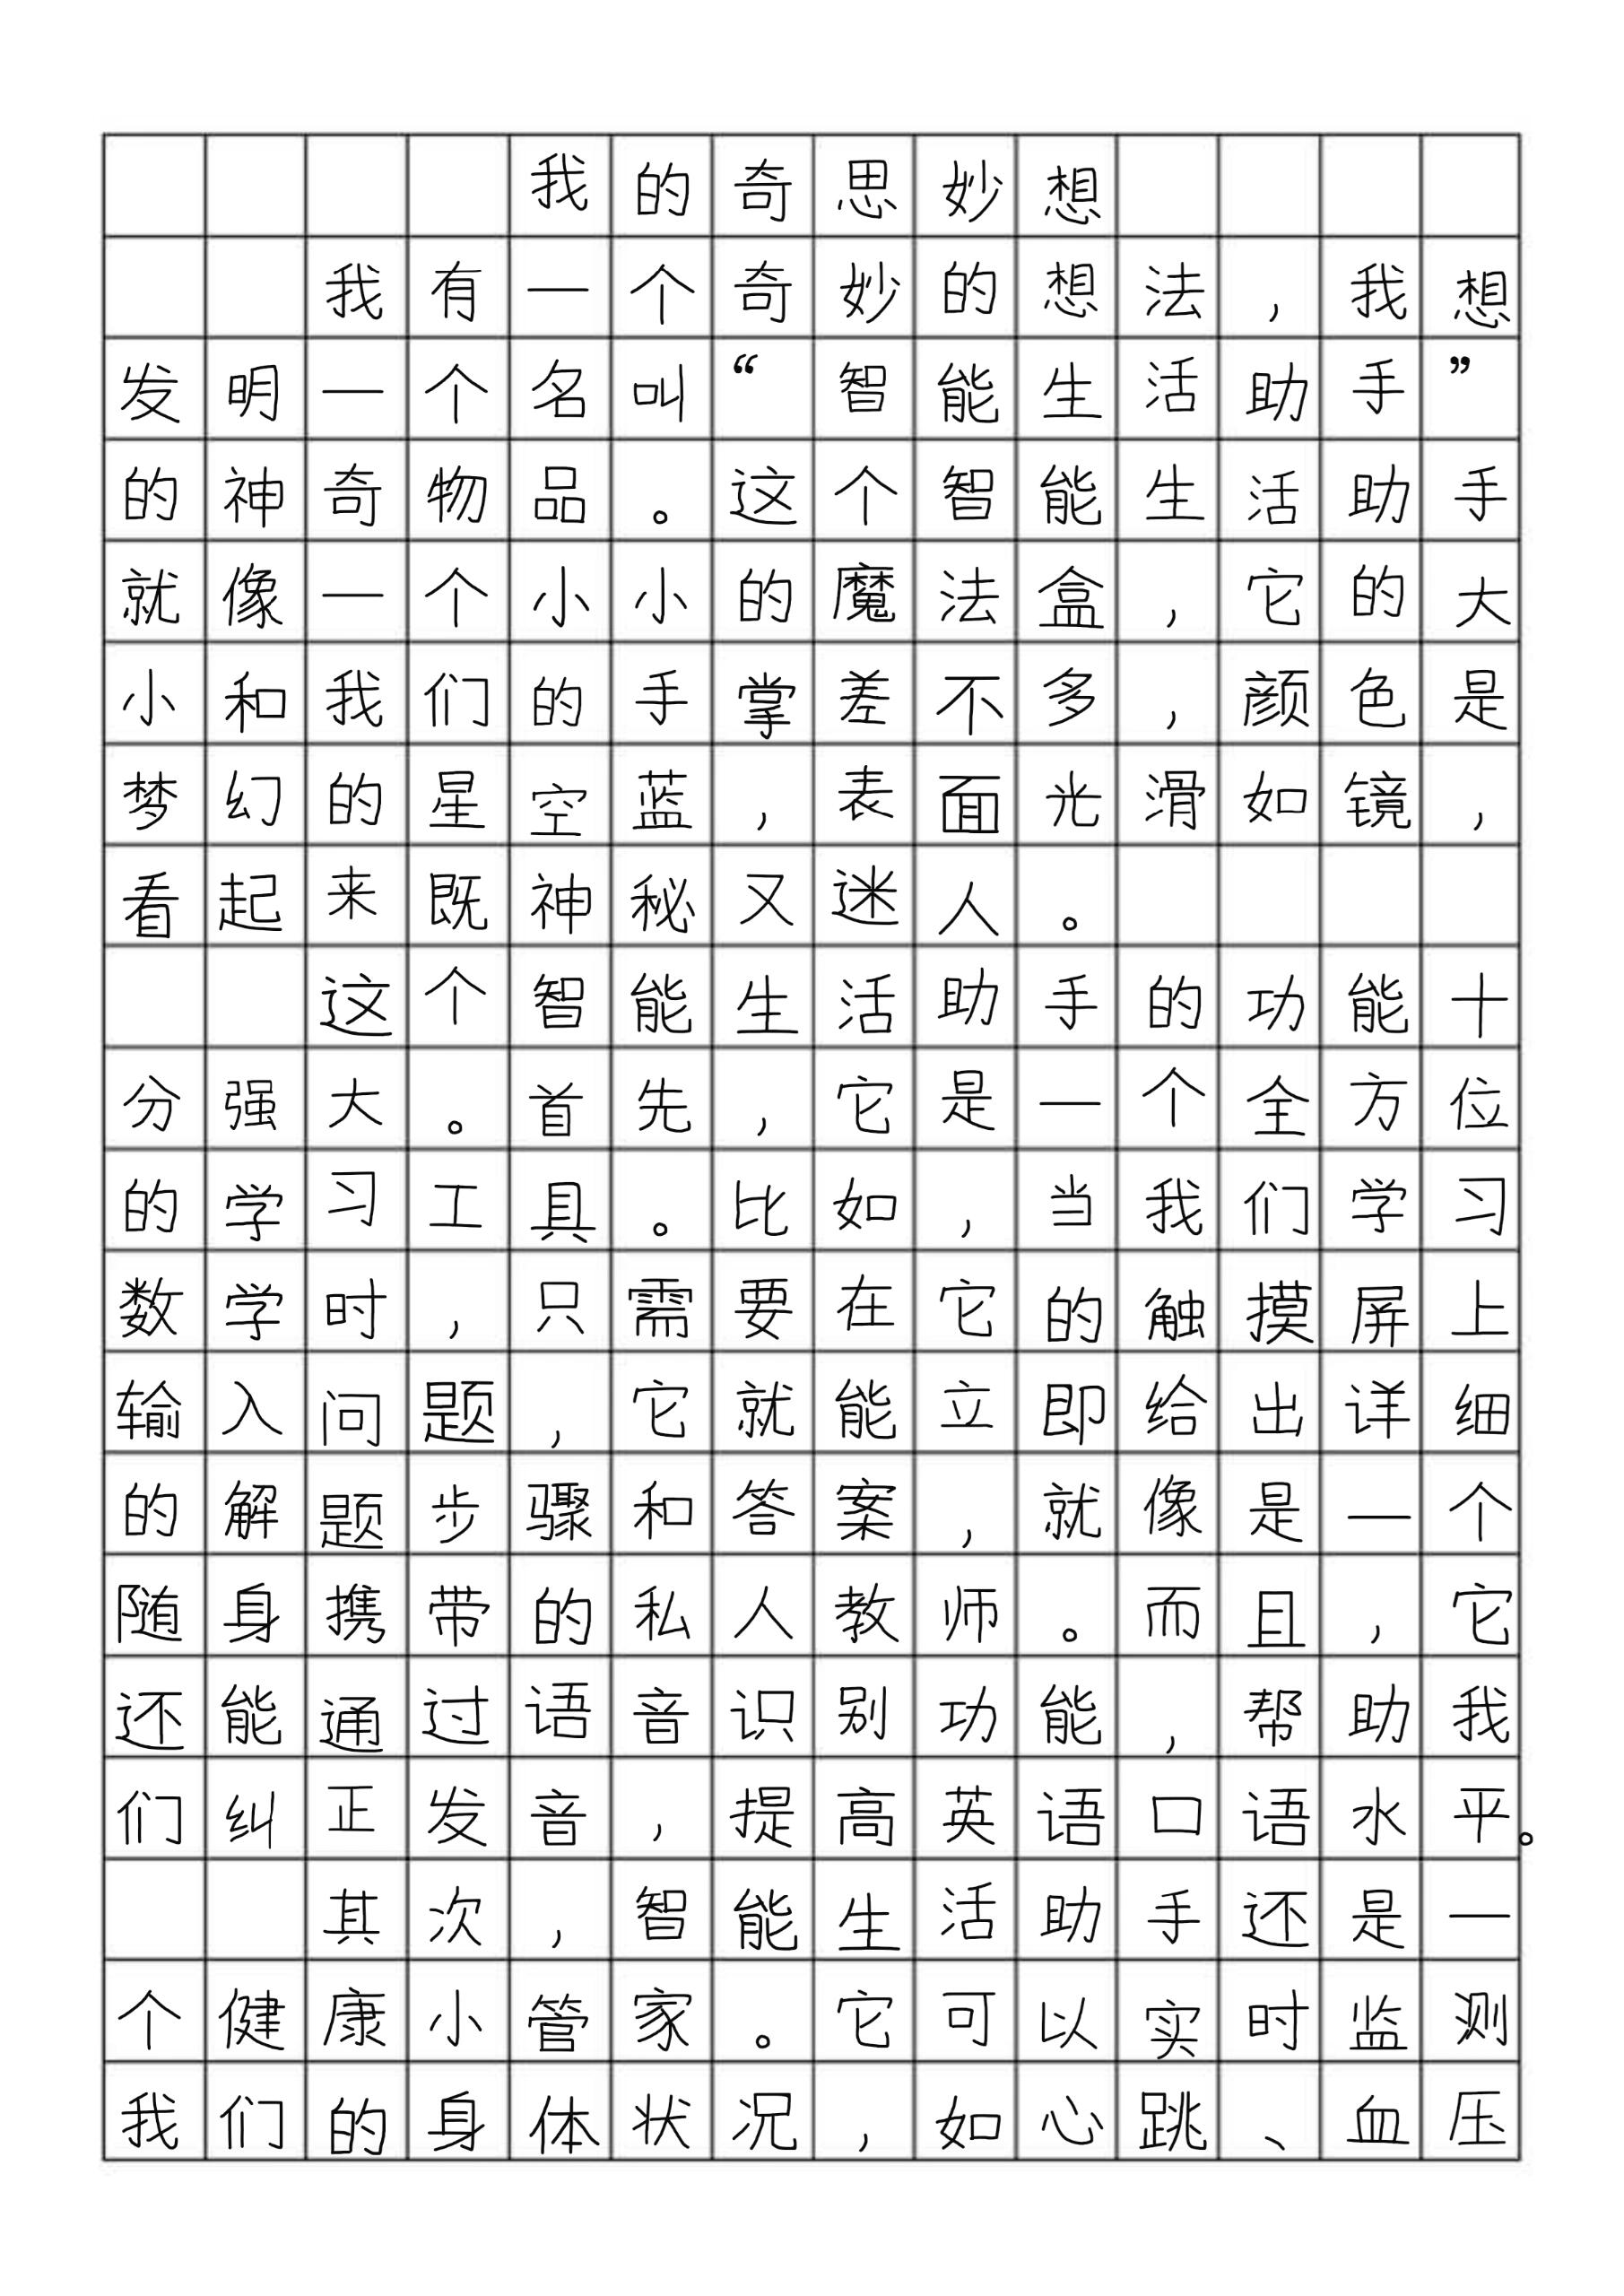 我的奇思妙想
我有一个奇妙的想法，我想
发明一个名叫“智能生活助手”
的神奇物品。这个智能生活助手
就像一个小小的魔法盒，它的大
小和我们的手掌差不多，颜色是
梦幻的星空蓝，表面光滑如镜，
看起来既神秘又迷人。
这个智能生活助手的功能十
分强大。首先，它是一个全方位
的学习工具。比如，当我们学习
数学时，只需要在它的触摸屏上
输入问题，它就能立即给出详细
的解题步骤和答案，就像是一个
随身携带的私人教师。而且，它
还能通过语音识别功能，帮助我
们纠正发音，提高英语口语水平。
其次，智能生活助手还是一
个健康小管家。它可以实时监测
我们的身体状况，如心跳、血压